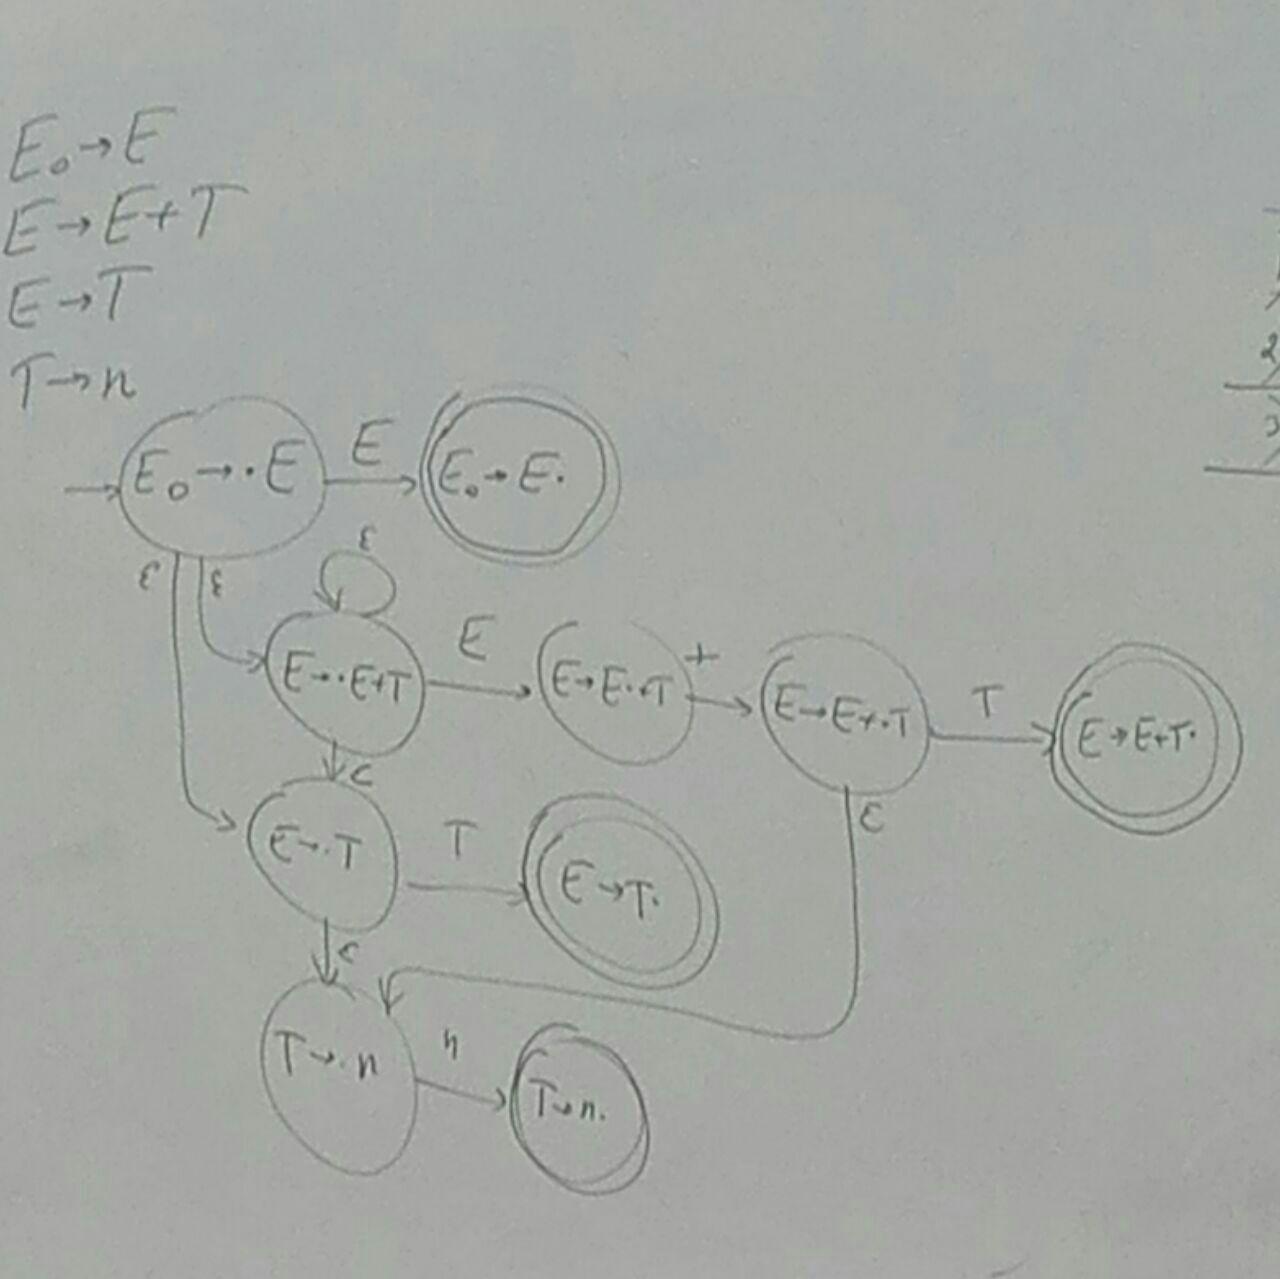 E₀→E
E→E+T
E→T
T→n
E₀→·E
E
E₀→E·
ε
ε
ε
E→·E+T
E
E→E·+T
+
E→E+·T
T
E→E+T·
ε
ε
E→·T
T
E→T·
ε
T→·n
n
T→n·